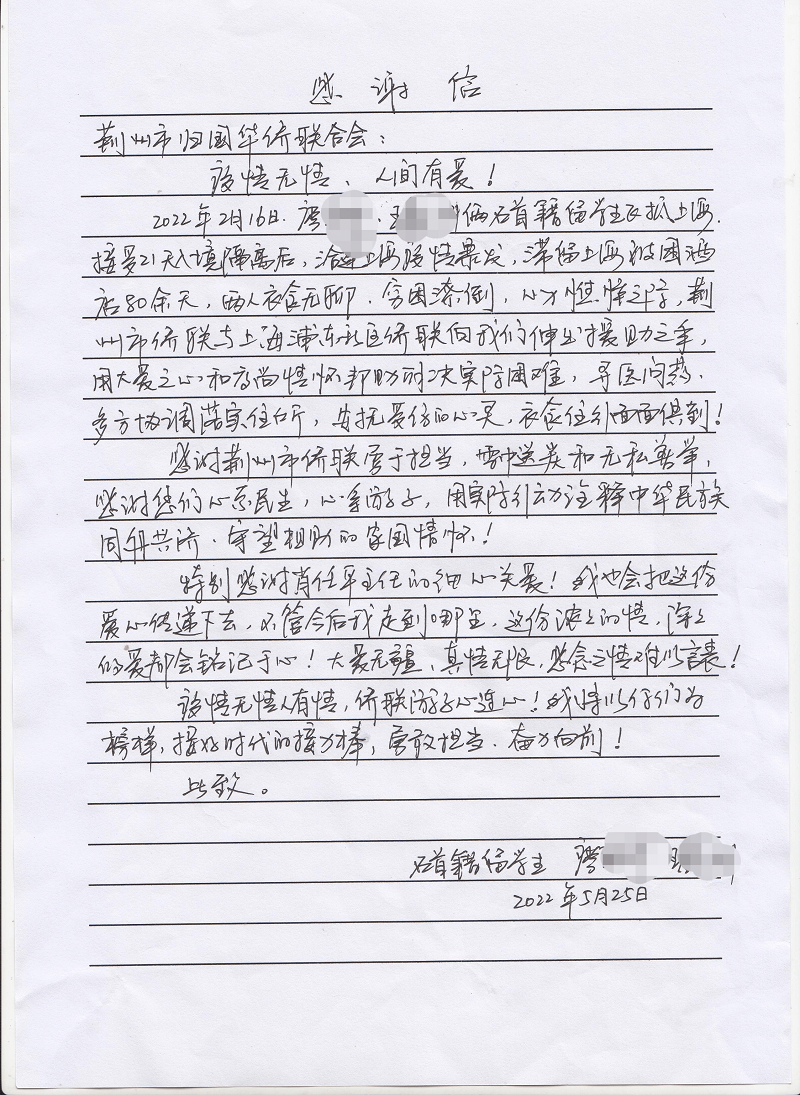 感谢信
荆州市归国华侨联合会：
疫情无情、人间有爱！
2022年2月16日. 廖 、王 俩石首籍留学生返抵上海.
接受21天入境隔离后，洽逢上海疫情暴发，滞留上海被困酒
店80余天，两人衣食无聊、穷困潦倒，心力憔悴之际，荆
州市侨联与上海浦东新区侨联向我们伸出援助之手，
用大爱之心和高尚情怀帮助解决实际困难，寻医问药.
多方协调落实住所，安抚受伤的心灵，衣食住行面面俱到！
感谢荆州市侨联勇于担当，雪中送炭和无私善举，
感谢您们心系民生，心牵游子，用实际行动诠释中华民族
同舟共济、守望相助的家国情怀！
特别感谢肖任平主任的细心关爱！我也会把这份
爱心传递下去，不管今后我走到哪里，这份浓浓的情，深深
的爱都会铭记于心！大爱无疆、真情无限，感念之情难以言表！
疫情无情人有情，侨联游子心连心！我将以你们为
榜样，接好时代的接力棒，勇敢担当、奋力向前！
此致。
石首籍留学生 廖
2022年5月25日